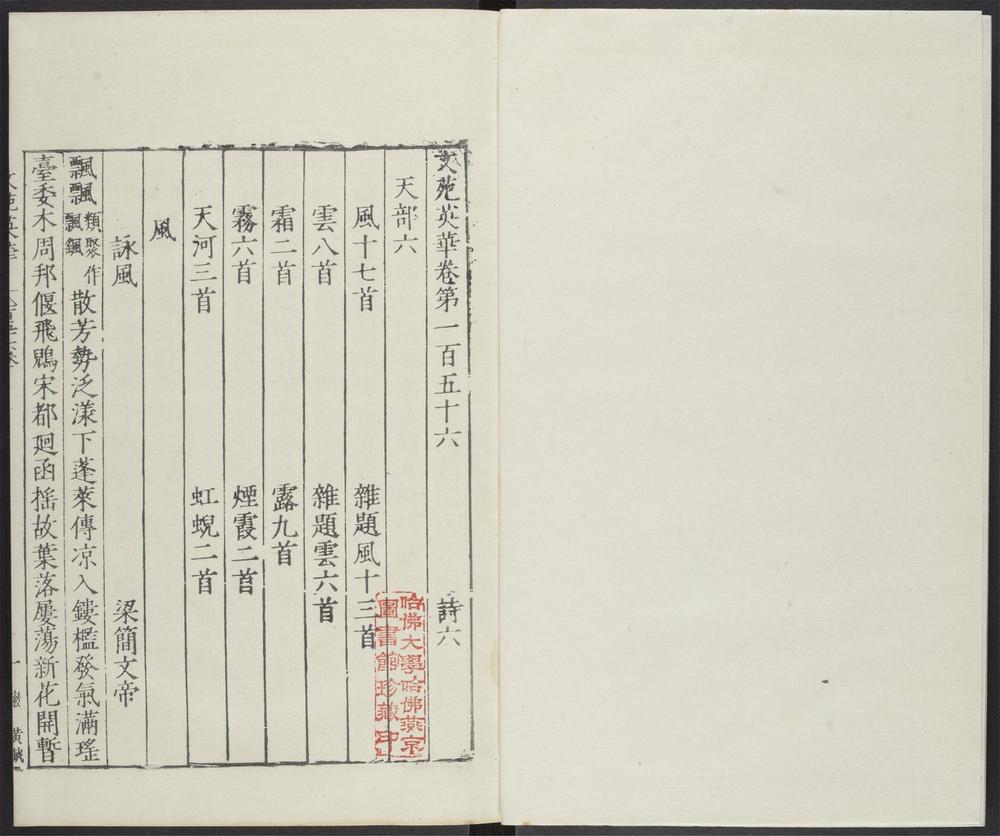 文苑英華卷第一百五十六 詩六
天部六
風十七首 雜題風十三首
雲八首 雜題雲六首
霜二首 露九首
霧六首 煙霞二首
天河三首 虹蜺二首
風
詠風 梁簡文帝
飄飄類聚作飄颻散芳勢泛漾下蓬萊傳凉入鏤檻發氣滿瑤
臺委木周邦偃飛鷁宋都廻函揺故葉落屢蕩新花開暫
哈佛大學哈佛燕京
圖書館珍藏印